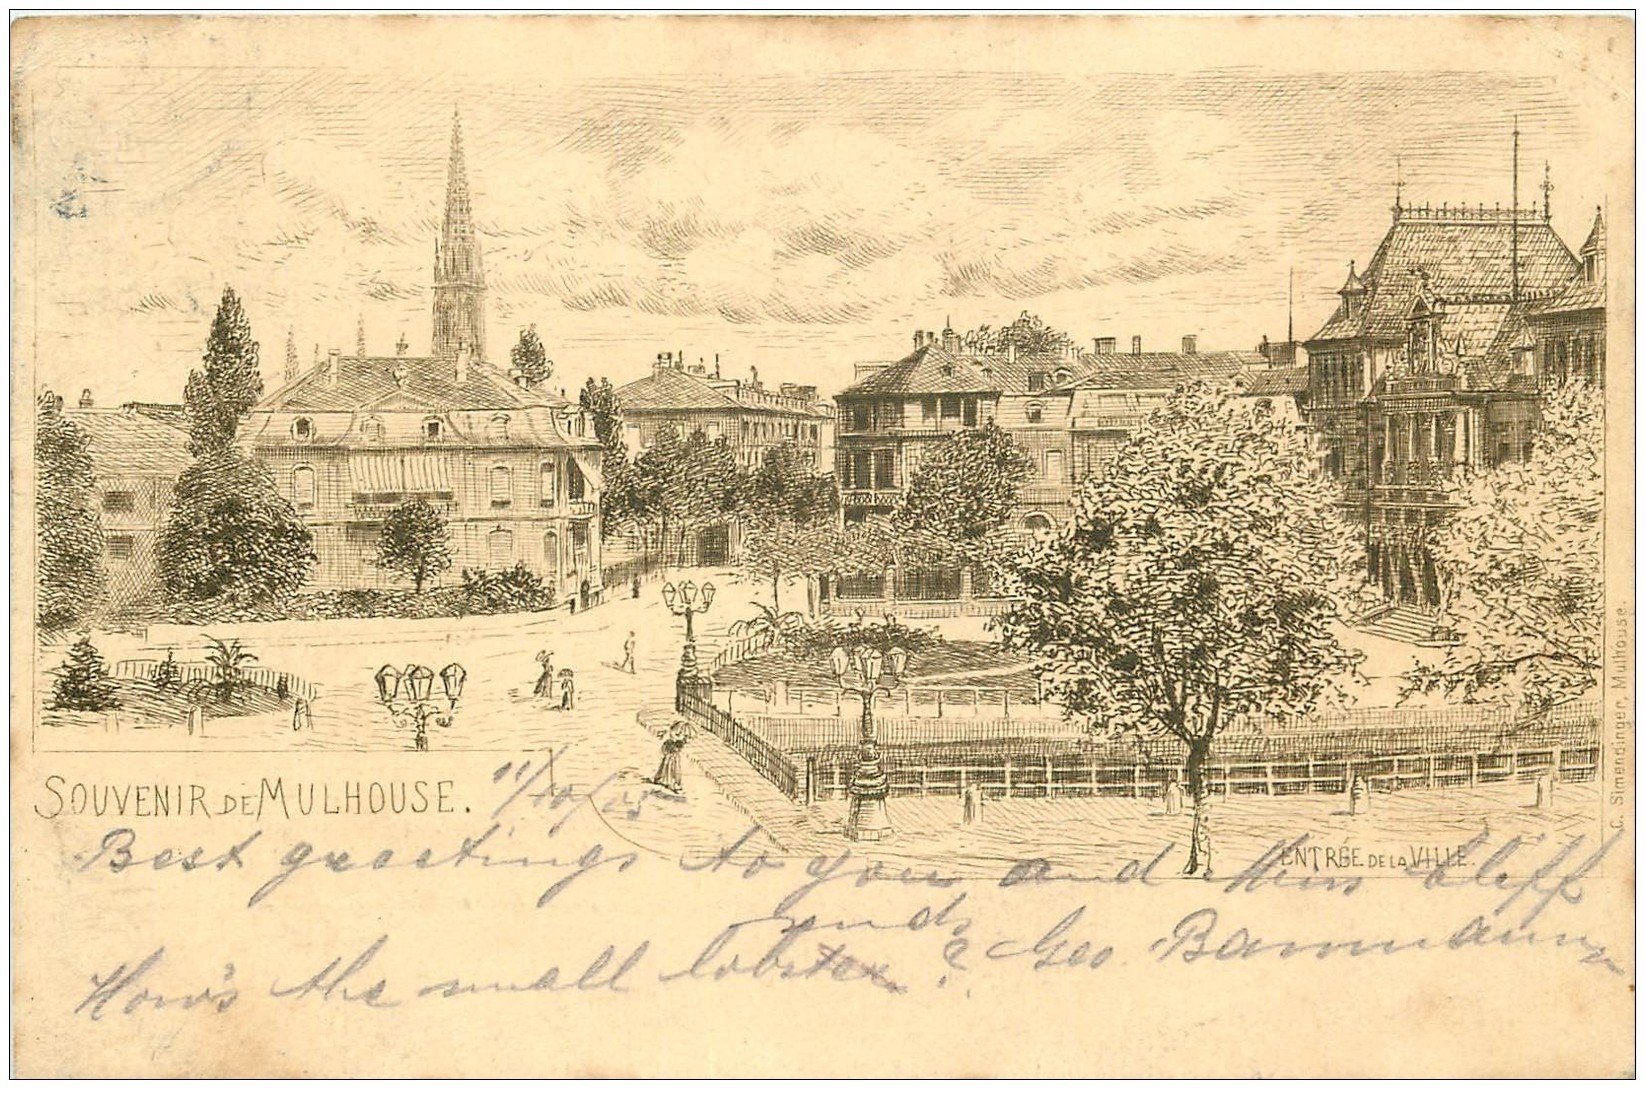 SOUVENIR DE MULHOUSE.
11/10/05
ENTRÉE DE LA VILLE.
C. Simendinger, Mulhouse.
Best greetings to you and Miss Cliff
How's the small lobster? Geo. Baumann